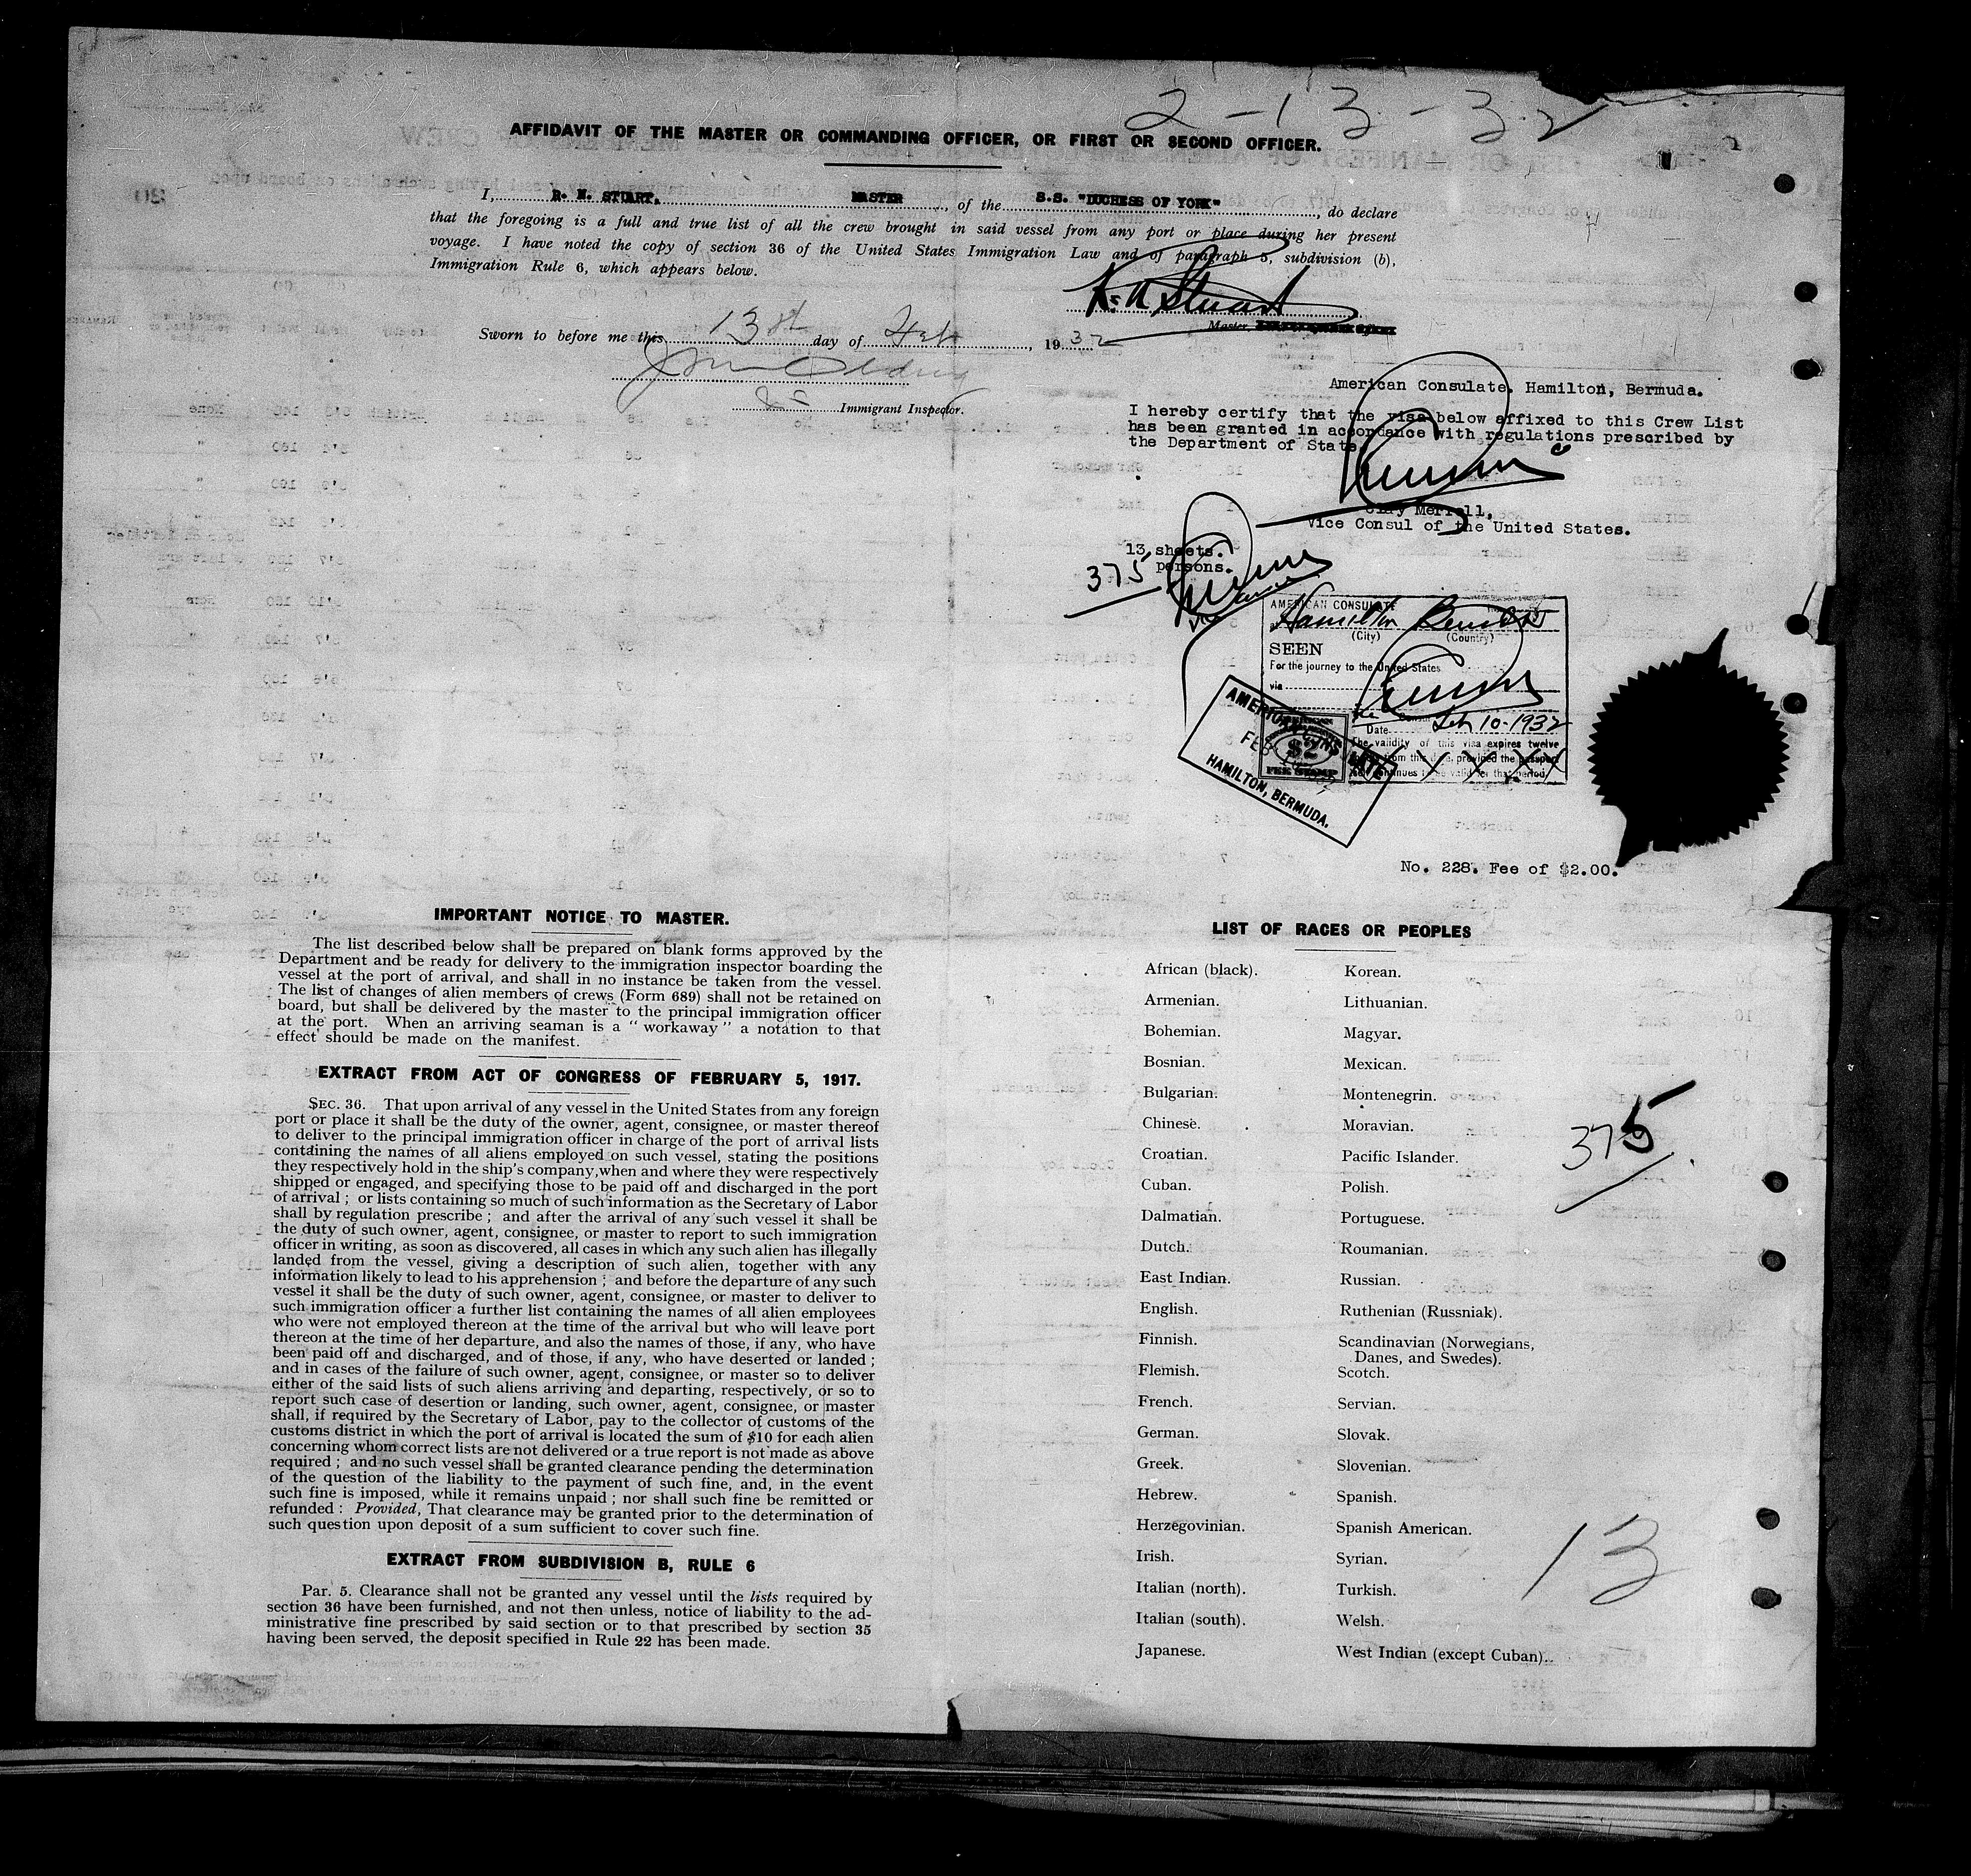 2-13-32
AFFIDAVIT OF THE MASTER OR COMMANDING OFFICER, OR FIRST OR SECOND OFFICER.
I, R. N. STUART, MASTER, of the S.S. "DUCHESS OF YORK", do declare
that the foregoing is a full and true list of all the crew brought in said vessel from any port or place during her present
voyage. I have noted the copy of section 36 of the United States Immigration Law and of paragraph 5, subdivision (b),
Immigration Rule 6, which appears below.
R. N Stuart
Master,
Sworn to before me this 13th day of Feb, 1932
Immigrant Inspector.
American Consulate. Hamilton, Bermuda.
I hereby certify that the visa below affixed to this Crew List
has been granted in accordance with regulations prescribed by
the Department of State.
Clay Merrell,
Vice Consul of the United States.
13 sheets.
375 persons.
AMERICAN CONSULATE
Hamilton Bermuda
(City) (Country)
SEEN
For the journey to the United States
via
Date Feb 10-1932
The validity of this visa expires twelve
from this date, provided the passport
continues to be valid for that period
AMERICAN CONSULATE
FEB
HAMILTON, BERMUDA.
$2
FEE STAMP
No. 228. Fee of $2.00.
IMPORTANT NOTICE TO MASTER.
The list described below shall be prepared on blank forms approved by the
Department and be ready for delivery to the immigration inspector boarding the
vessel at the port of arrival, and shall in no instance be taken from the vessel.
The list of changes of alien members of crews (Form 689) shall not be retained on
board, but shall be delivered by the master to the principal immigration officer
at the port. When an arriving seaman is a "workaway" a notation to that
effect should be made on the manifest.
EXTRACT FROM ACT OF CONGRESS OF FEBRUARY 5, 1917.
SEC. 36. That upon arrival of any vessel in the United States from any foreign
port or place it shall be the duty of the owner, agent, consignee, or master thereof
to deliver to the principal immigration officer in charge of the port of arrival lists
containing the names of all aliens employed on such vessel, stating the positions
they respectively hold in the ship's company, when and where they were respectively
shipped or engaged, and specifying those to be paid off and discharged in the port
of arrival; or lists containing so much of such information as the Secretary of Labor
shall by regulation prescribe; and after the arrival of any such vessel it shall be
the duty of such owner, agent, consignee, or master to report to such immigration
officer in writing, as soon as discovered, all cases in which any such alien has illegally
landed from the vessel, giving a description of such alien, together with any
information likely to lead to his apprehension; and before the departure of any such
vessel it shall be the duty of such owner, agent, consignee, or master to deliver to
such immigration officer a further list containing the names of all alien employees
who were not employed thereon at the time of the arrival but who will leave port
thereon at the time of her departure, and also the names of those, if any, who have
been paid off and discharged, and of those, if any, who have deserted or landed;
and in cases of the failure of such owner, agent, consignee, or master so to deliver
either of the said lists of such aliens arriving and departing, respectively, or so to
report such case of desertion or landing, such owner, agent, consignee, or master
shall, if required by the Secretary of Labor, pay to the collector of customs of the
customs district in which the port of arrival is located the sum of $10 for each alien
concerning whom correct lists are not delivered or a true report is not made as above
required; and no such vessel shall be granted clearance pending the determination
of the question of the liability to the payment of such fine, and, in the event
such fine is imposed, while it remains unpaid; nor shall such fine be remitted or
refunded: Provided, That clearance may be granted prior to the determination of
such question upon deposit of a sum sufficient to cover such fine.
EXTRACT FROM SUBDIVISION B, RULE 6
Par. 5. Clearance shall not be granted any vessel until the lists required by
section 36 have been furnished, and not then unless, notice of liability to the ad-
ministrative fine prescribed by said section or to that prescribed by section 35
having been served, the deposit specified in Rule 22 has been made.
LIST OF RACES OR PEOPLES
African (black).
Armenian.
Bohemian.
Bosnian.
Bulgarian.
Chinese.
Croatian.
Cuban.
Dalmatian.
Dutch.
East Indian.
English.
Finnish.
Flemish.
French.
German.
Greek.
Hebrew.
Herzegovinian.
Irish.
Italian (north).
Italian (south).
Japanese.
Korean.
Lithuanian.
Magyar.
Mexican.
Montenegrin.
Moravian.
Pacific Islander.
Polish.
Portuguese.
Roumanian.
Russian.
Ruthenian (Russniak).
Scandinavian (Norwegians,
Danes, and Swedes).
Scotch.
Servian.
Slovak.
Slovenian.
Spanish.
Spanish American.
Syrian.
Turkish.
Welsh.
West Indian (except Cuban).
375
13